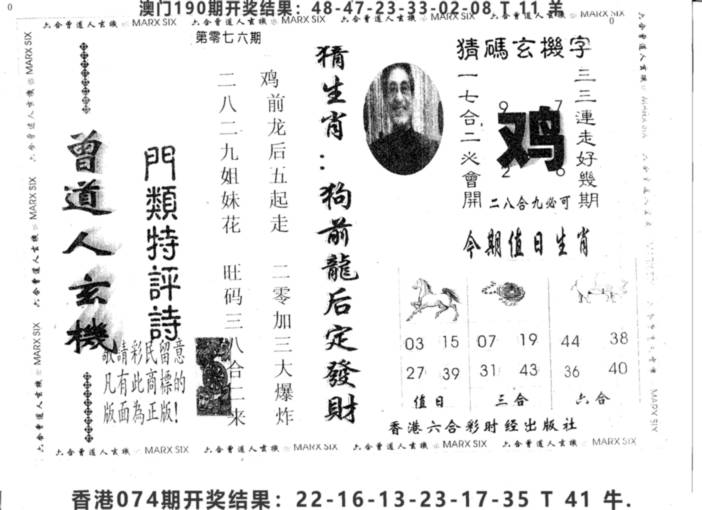 澳门190期开奖结果：48-47-23-33-02-08 T 11 羊
六合曾道人玄機 MARX SIX 六合曾道人玄機 MARX SIX 六合曾道人玄機 MARX SIX 六合曾道人玄機 MARX SIX
第零七六期
曾道人玄機
門類特評詩
敬請彩民留意
凡有此商標的
版面為正版!
鸡前龙后五起走 二零加三大爆炸
二八二九姐妹花 旺码三八合二来
猜生肖：狗前龍后定發財
猜碼玄機字
三三連走好幾期
一七合二必會開
9 7
鸡
2 6
二八合九必可
今期值日生肖
03 15 07 19 44 38
27 39 31 43 36 40
值日 三合 六合
香港六合彩时经出版社
六合曾道人玄機 MARX SIX 六合曾道人玄機 MARX SIX 六合曾道人玄機 MARX SIX 六合曾道人玄機 MARX SIX
香港074期开奖结果：22-16-13-23-17-35 T 41 牛.